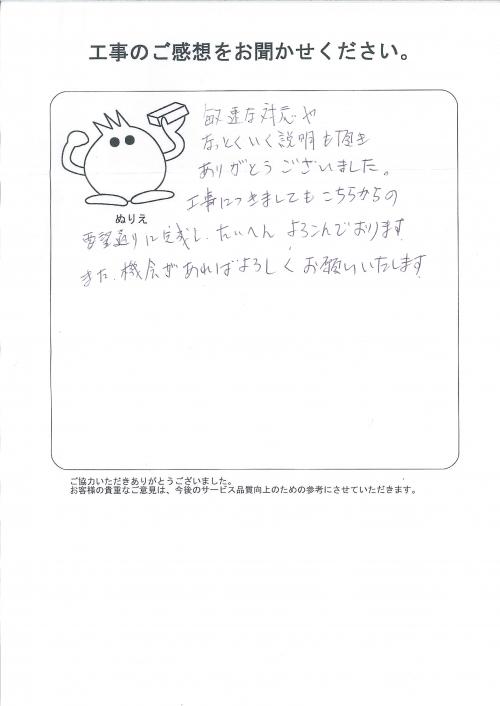 工事のご感想をお聞かせください。
敏速な対応や
なっとくいく説明も頂き
ありがとうございました。
工事につきましてもこちらからの
ぬりえ
要望通りに完成し、たいへん よろこんでおります。
また、機会があればよろしくお願いいたします。
ご協力いただきありがとうございました。
お客様の貴重なご意見は、今後のサービス品質向上のための参考にさせていただきます。